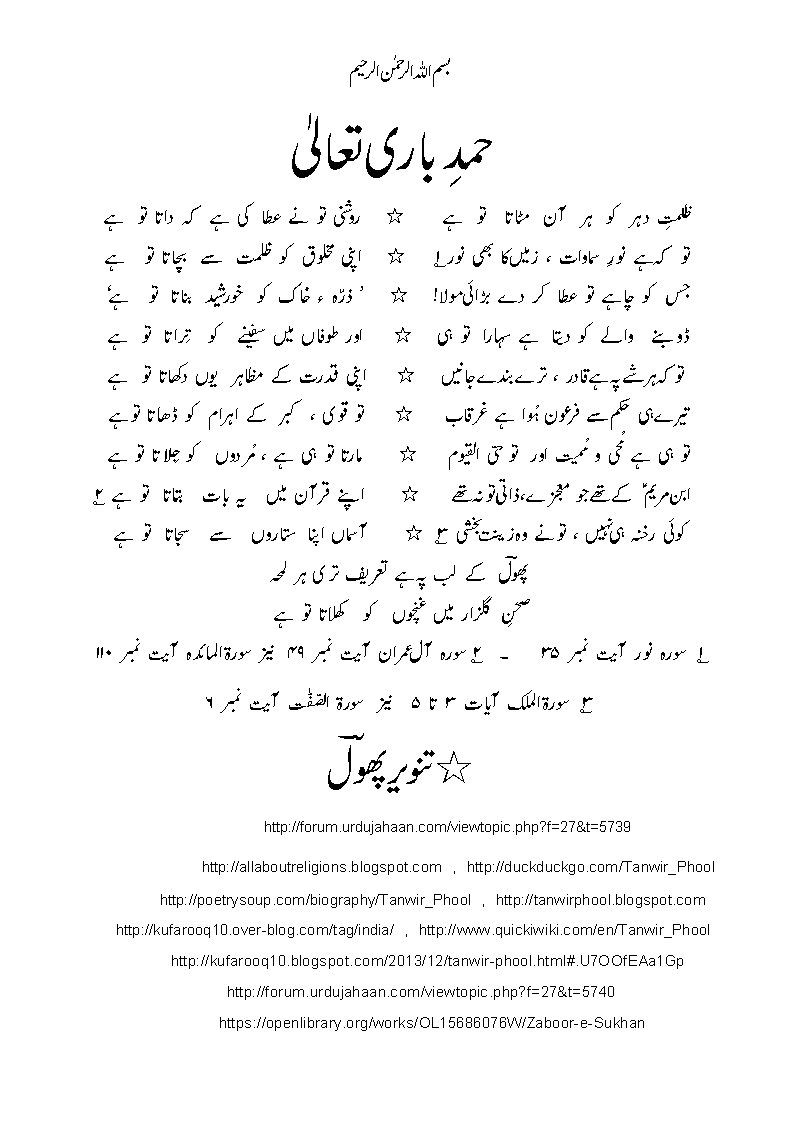 بسم اللہ الرحمٰن الرحیم
حمدِ باری تعالیٰ
ظلمتِ دہر کو ہر آن مٹاتا تو ہے ☆ روشنی تو نے عطا کی ہے کہ داتا تو ہے
تو کہ ہے نورِ سماوات ، زمیں کا بھی نور ۱؎ ☆ اپنی مخلوق کو ظلمت سے بچاتا تو ہے
جس کو چاہے تو عطا کر دے بڑائی مولا! ☆ ’ ذرّہ ء خاک کو خورشید بناتا تو ہے‘
ڈوبنے والے کو دیتا ہے سہارا تو ہی ☆ اور طوفاں میں سفینے کو تِراتا تو ہے
تو کہ ہر شے پہ ہے قادر ، ترے بندے جانیں ☆ اپنی قدرت کے مظاہر یوں دکھاتا تو ہے
تیرے ہی حکم سے فرعون ہُوا ہے غرقاب ☆ تو قوی ، کبر کے اہرام کو ڈھاتا تو ہے
تو ہی ہے مُحی و مُمیت اور تو حیّ القیوم ☆ مارتا تو ہی ہے ، مُردوں کو جِلاتا تو ہے
ابن مریمؑ کے تھے جو معجزے، ذاتی تو نہ تھے ☆ اپنے قرآن میں یہ بات بتاتا تو ہے ۲؎
کوئی رخنہ ہی نہیں ، تو نے وہ زینت بخشی ۳؎ ☆ آسماں اپنا ستاروں سے سجاتا تو ہے
پھولؔ کے لب پہ ہے تعریف تری ہر لمحہ
صحنِ گلزار میں غنچوں کو کھلاتا تو ہے
۱؎ سورہ نور آیت نمبر ۳۵ ۔ ۲؎ سورہ آل عمران آیت نمبر ۴۹ نیز سورۃ المائدہ آیت نمبر ۱۱۰
۳؎ سورۃ الملک آیات ۳ تا ۵ نیز سورۃ الصّٰفّٰت آیت نمبر ۶
☆ تنویر پھولؔ
http://forum.urdujahaan.com/viewtopic.php?f=27&t=5739
http://allaboutreligions.blogspot.com , http://duckduckgo.com/Tanwir_Phool
http://poetrysoup.com/biography/Tanwir_Phool , http://tanwirphool.blogspot.com
http://kufarooq10.over-blog.com/tag/india/ , http://www.quickiwiki.com/en/Tanwir_Phool
http://kufarooq10.blogspot.com/2013/12/tanwir-phool.html#.U7OOfEAa1Gp
http://forum.urdujahaan.com/viewtopic.php?f=27&t=5740
https://openlibrary.org/works/OL15686076W/Zaboor-e-Sukhan